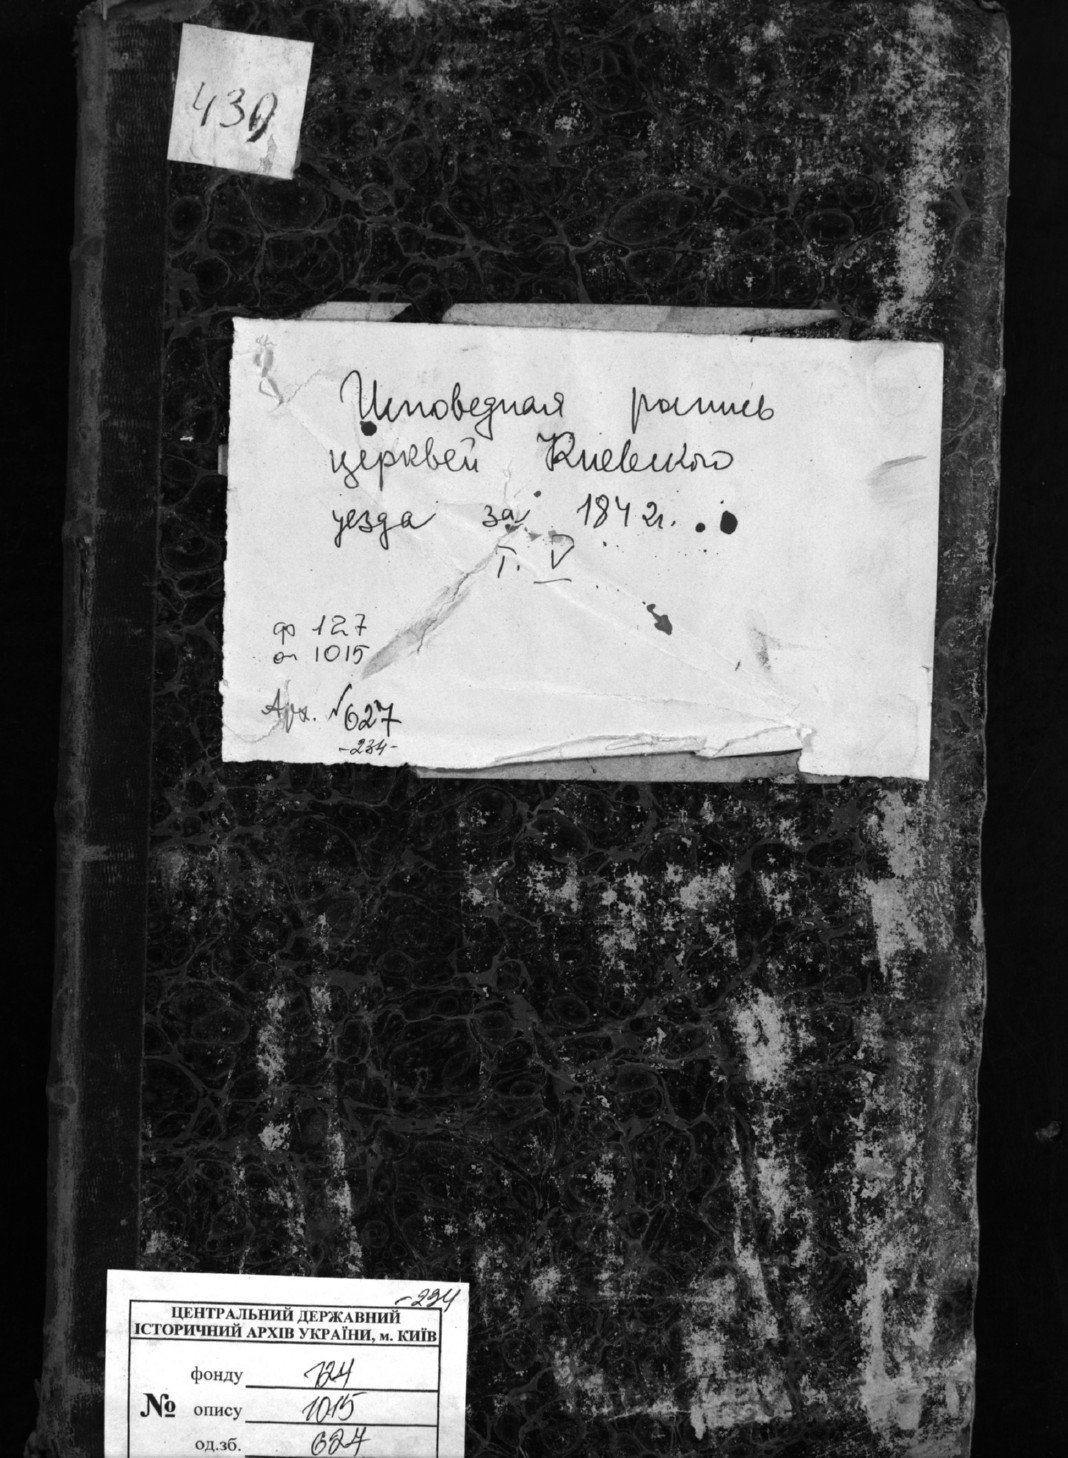 430
Исповедная роспись
церквей Киевского
уезда за 1842г.
Т. V
ф 127
оп 1015
Арх. №627
-234-
-234
ЦЕНТРАЛЬНИЙ ДЕРЖАВНИЙ
ІСТОРИЧНИЙ АРХІВ УКРАЇНИ, м. КИЇВ
фонду 127
№ опису 1015
од.зб. 627